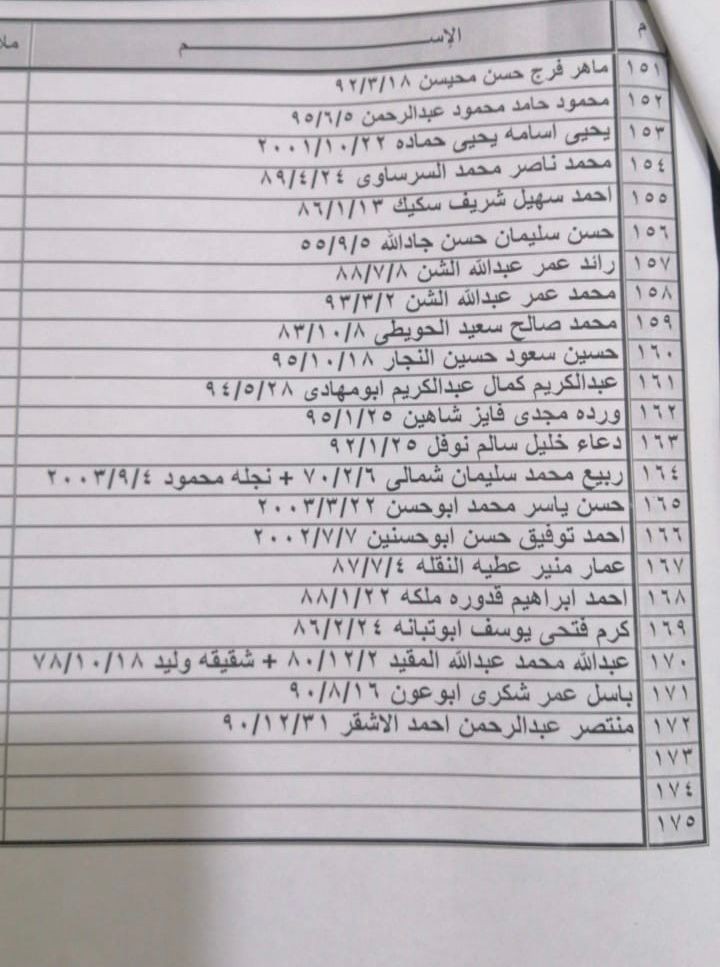 م الإســـــــــــــــــم ملا
١٥١ ماهر فرج حسن محيسن ٩٢/٣/١٨
١٥٢ محمود حامد محمود عبدالرحمن ٩٥/٦/٥
١٥٣ يحيى اسامه يحيى حماده ٢٠٠١/١٠/٢٢
١٥٤ محمد ناصر محمد السرساوى ٨٩/٤/٢٤
١٥٥ احمد سهيل شريف سكيك ٨٦/١/١٣
١٥٦ حسن سليمان حسن جادالله ٥٥/٩/٥
١٥٧ رائد عمر عبدالله الشن ٨٨/٧/٨
١٥٨ محمد عمر عبدالله الشن ٩٣/٣/٢
١٥٩ محمد صالح سعيد الحويطى ٨٣/١٠/٨
١٦٠ حسين سعود حسين النجار ٩٥/١٠/١٨
١٦١ عبدالكريم كمال عبدالكريم ابومهادى ٩٤/٥/٢٨
١٦٢ ورده مجدى فايز شاهين ٩٥/١/٢٥
١٦٣ دعاء خليل سالم نوفل ٩٢/١/٢٥
١٦٤ ربيع محمد سليمان شمالى ٧٠/٢/٦ + نجله محمود ٢٠٠٣/٩/٤
١٦٥ حسن ياسر محمد ابوحسن ٢٠٠٣/٣/٢٢
١٦٦ احمد توفيق حسن ابوحسنين ٢٠٠٢/٧/٧
١٦٧ عمار منير عطيه النقله ٨٧/٧/٤
١٦٨ احمد ابراهيم قدوره ملكه ٨٨/١/٢٢
١٦٩ كرم فتحى يوسف ابوتبانه ٨٦/٢/٢٤
١٧٠ عبدالله محمد عبدالله المقيد ٨٠/١٢/٢ + شقيقه وليد ٧٨/١٠/١٨
١٧١ باسل عمر شكرى ابوعون ٩٠/٨/١٦
١٧٢ منتصر عبدالرحمن احمد الاشقر ٩٠/١٢/٣١
١٧٣
١٧٤
١٧٥